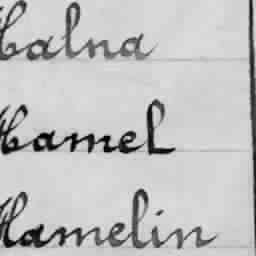 Halna
Hamel
Hamelin